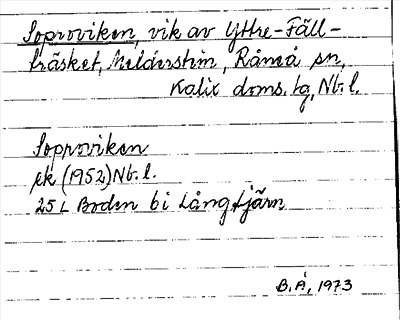 Soproviken, vik av Yttre-Fäll-
träsket, Melderstein, Råneå sn,
Kalix doms. tg, Nb. l.
Soproviken
ek (1952) Nb. l.
25 L Boden bi Långtjärn
B. Å, 1973